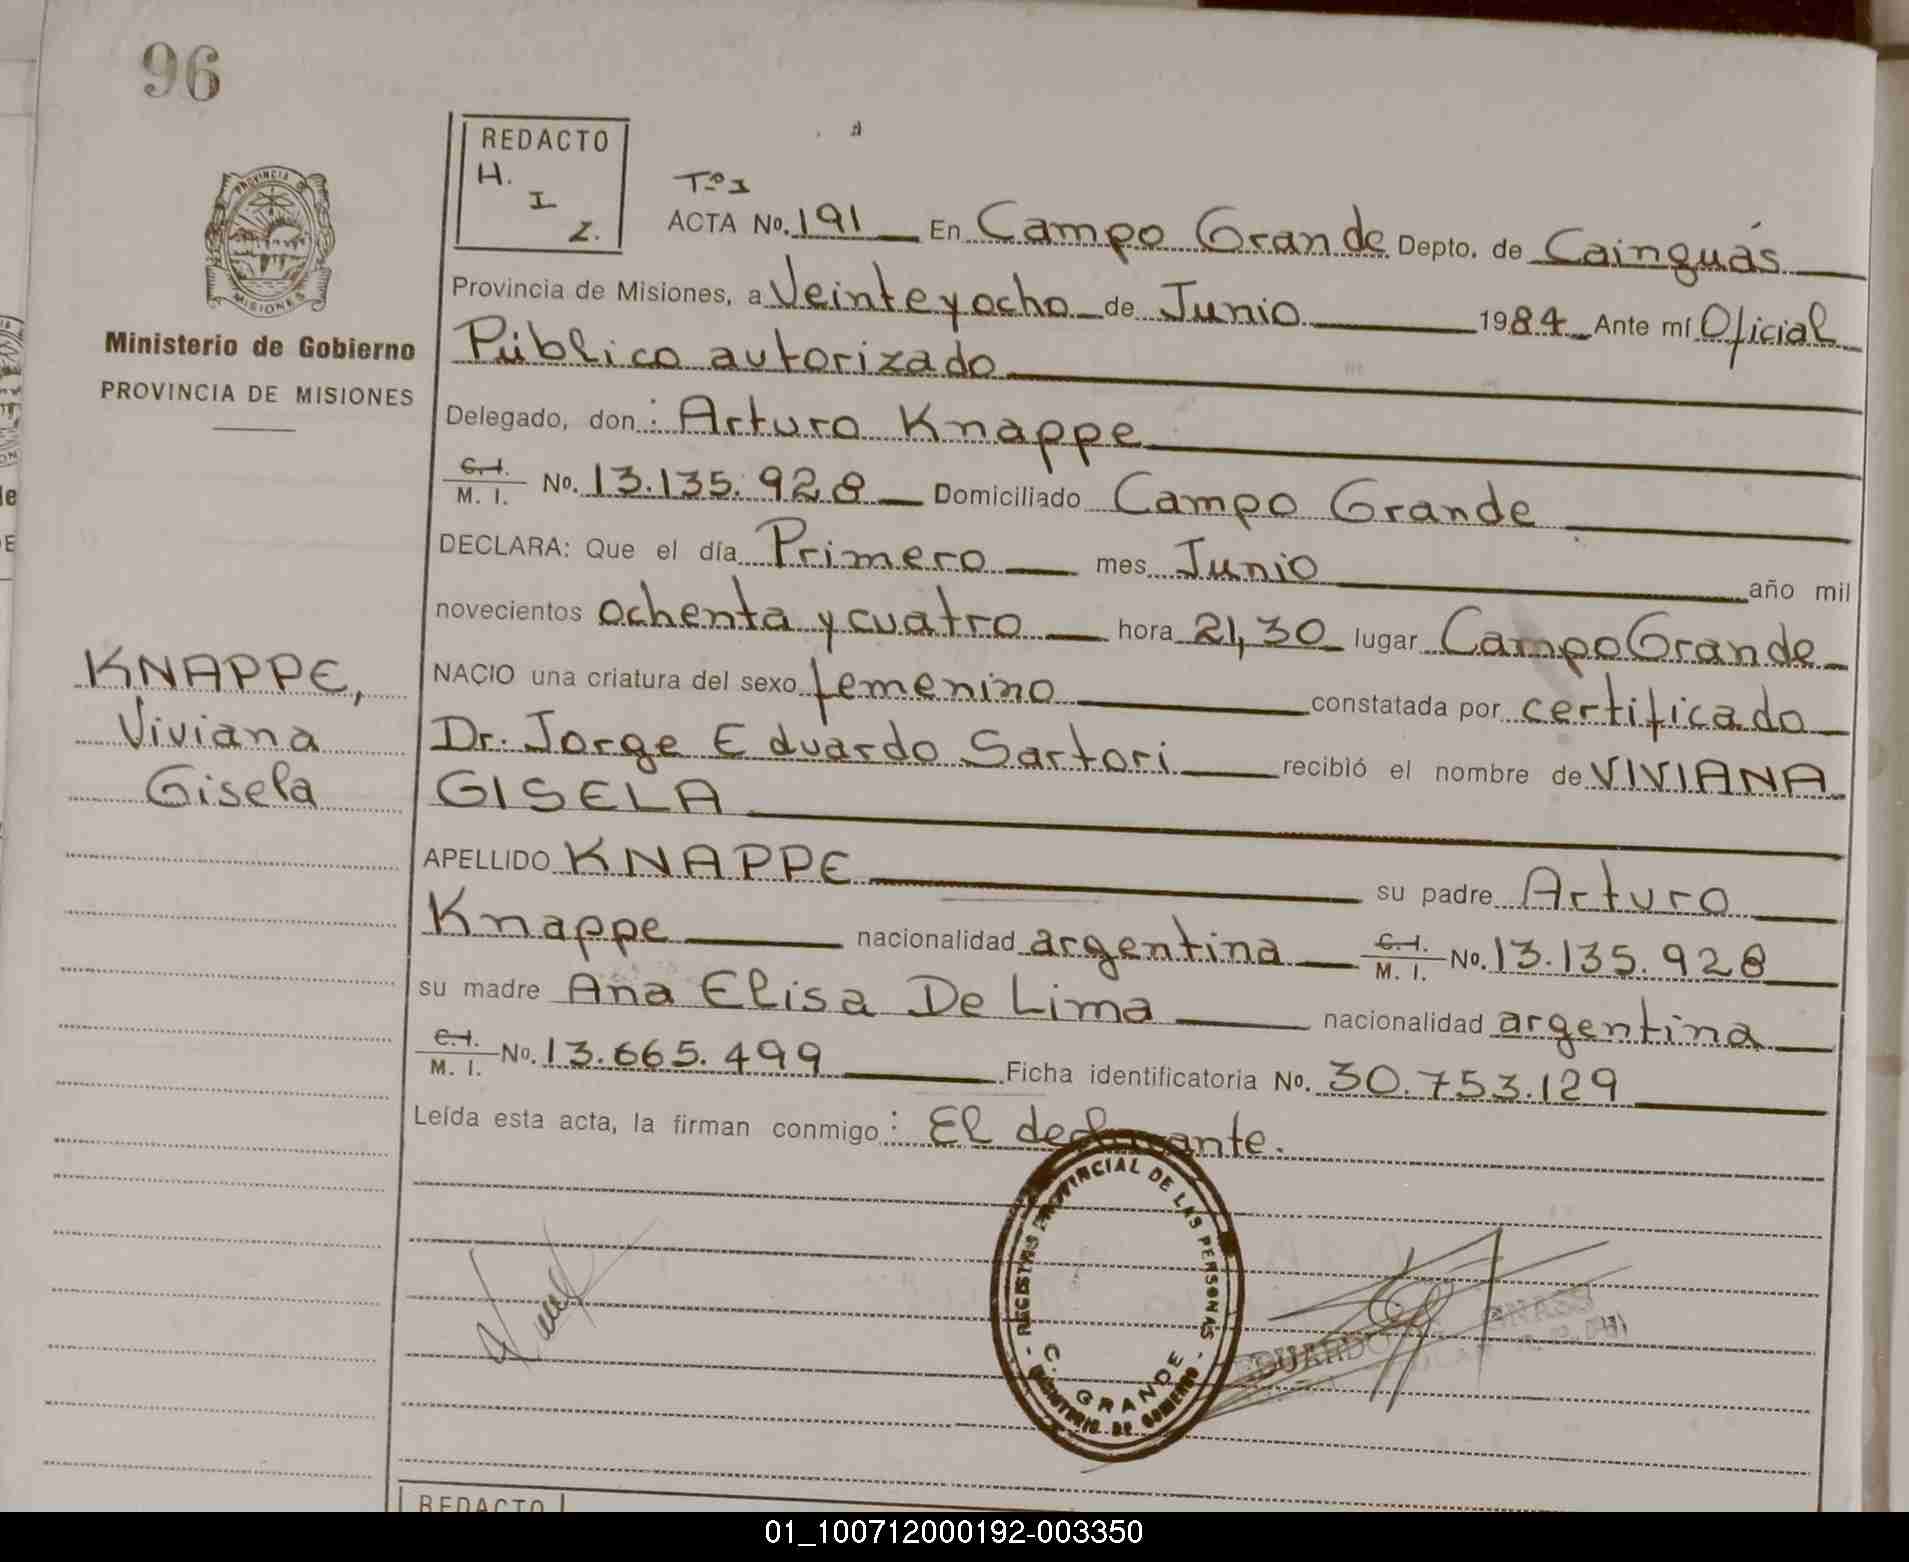 96
REDACTO
H.
I
Z.
PROVINCIA DE
MISIONES
Ministerio de Gobierno
PROVINCIA DE MISIONES
Tº I
ACTA No. 191 En Campo Grande Depto. de Cainguás
Provincia de Misiones, a Veinte y ocho de Junio 1984 Ante mí Oficial
Público autorizado
Delegado, don: Arturo Knappe
C.I.
M. I. No. 13.135.928 Domiciliado Campo Grande
DECLARA: Que el día Primero mes Junio año mil
novecientos ochenta y cuatro hora 21,30 lugar Campo Grande
NACIO una criatura del sexo femenino constatada por certificado
Dr. Jorge Eduardo Sartori recibió el nombre de VIVIANA
GISELA
APELLIDO KNAPPE su padre Arturo
Knappe nacionalidad argentina C.I. M. I. No. 13.135.928
su madre Ana Elisa De Lima nacionalidad argentina
C.I.
M. I. No. 13.665.499 Ficha identificatoria No. 30.753.129
Leída esta acta, la firman conmigo: El declarante.
KNAPPE,
Viviana
Gisela
PROVINCIAL DE LAS PERSONAS
C. GRANDE
MINISTERIO DE GOBIERNO
EDUARDO
REDACTO
01_100712000192-003350